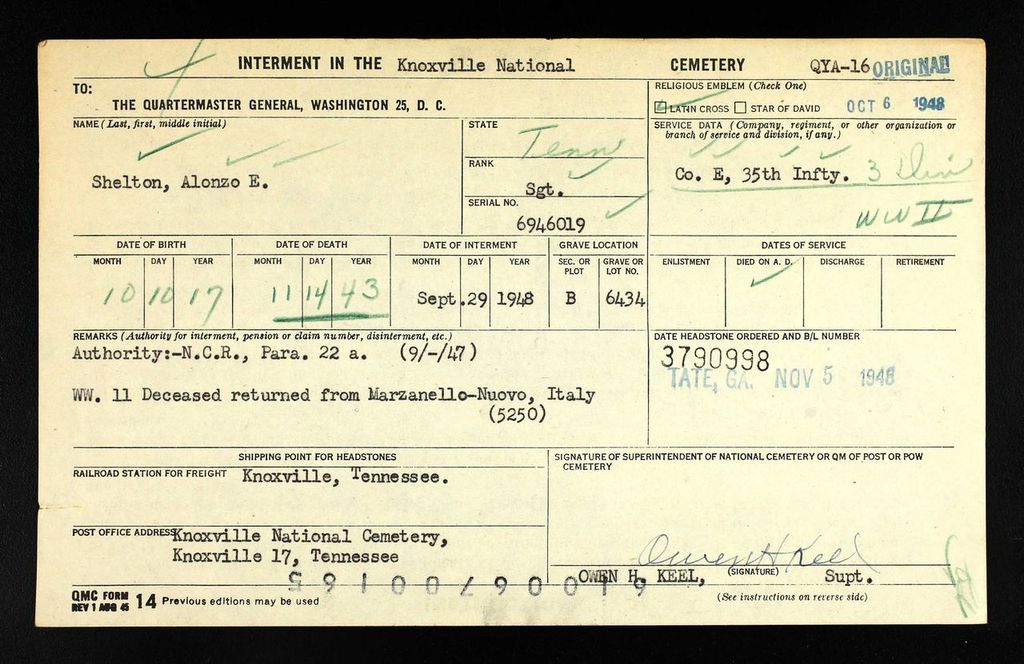 INTERMENT IN THE Knoxville National CEMETERY QYA-16 ORIGINAL
TO:
THE QUARTERMASTER GENERAL, WASHINGTON 25, D. C.
RELIGIOUS EMBLEM (Check One)
LATIN CROSS STAR OF DAVID OCT 6 1948
NAME (Last, first, middle initial)
Shelton, Alonzo E.
STATE
Tenn
RANK
Sgt.
SERIAL NO.
6946019
SERVICE DATA (Company, regiment, or other organization or
branch of service and division, if any.)
Co. E, 35th Infty. 3 Divn
WW II
DATE OF BIRTH DATE OF DEATH DATE OF INTERMENT GRAVE LOCATION DATES OF SERVICE
MONTH DAY YEAR MONTH DAY YEAR MONTH DAY YEAR SEC. OR PLOT GRAVE OR LOT NO. ENLISTMENT DIED ON A. D. DISCHARGE RETIREMENT
10 10 17 11 14 43 Sept. 29 1948 B 6434
REMARKS (Authority for interment, pension or claim number, disinterment, etc.)
Authority:-N.C.R., Para. 22 a. (9/-/47)
WW. ll Deceased returned from Marzanello-Nuovo, Italy
(5250)
DATE HEADSTONE ORDERED AND B/L NUMBER
3790998
TATE, GA. NOV 5 1948
SHIPPING POINT FOR HEADSTONES
RAILROAD STATION FOR FREIGHT Knoxville, Tennessee.
POST OFFICE ADDRESS Knoxville National Cemetery,
Knoxville 17, Tennessee
SIGNATURE OF SUPERINTENDENT OF NATIONAL CEMETERY OR QM OF POST OR POW
CEMETERY
Owen H Keel
OWEN H. KEEL, (SIGNATURE) Supt.
(See instructions on reverse side)
QMC FORM
REV 1 AUG 45 14 Previous editions may be used